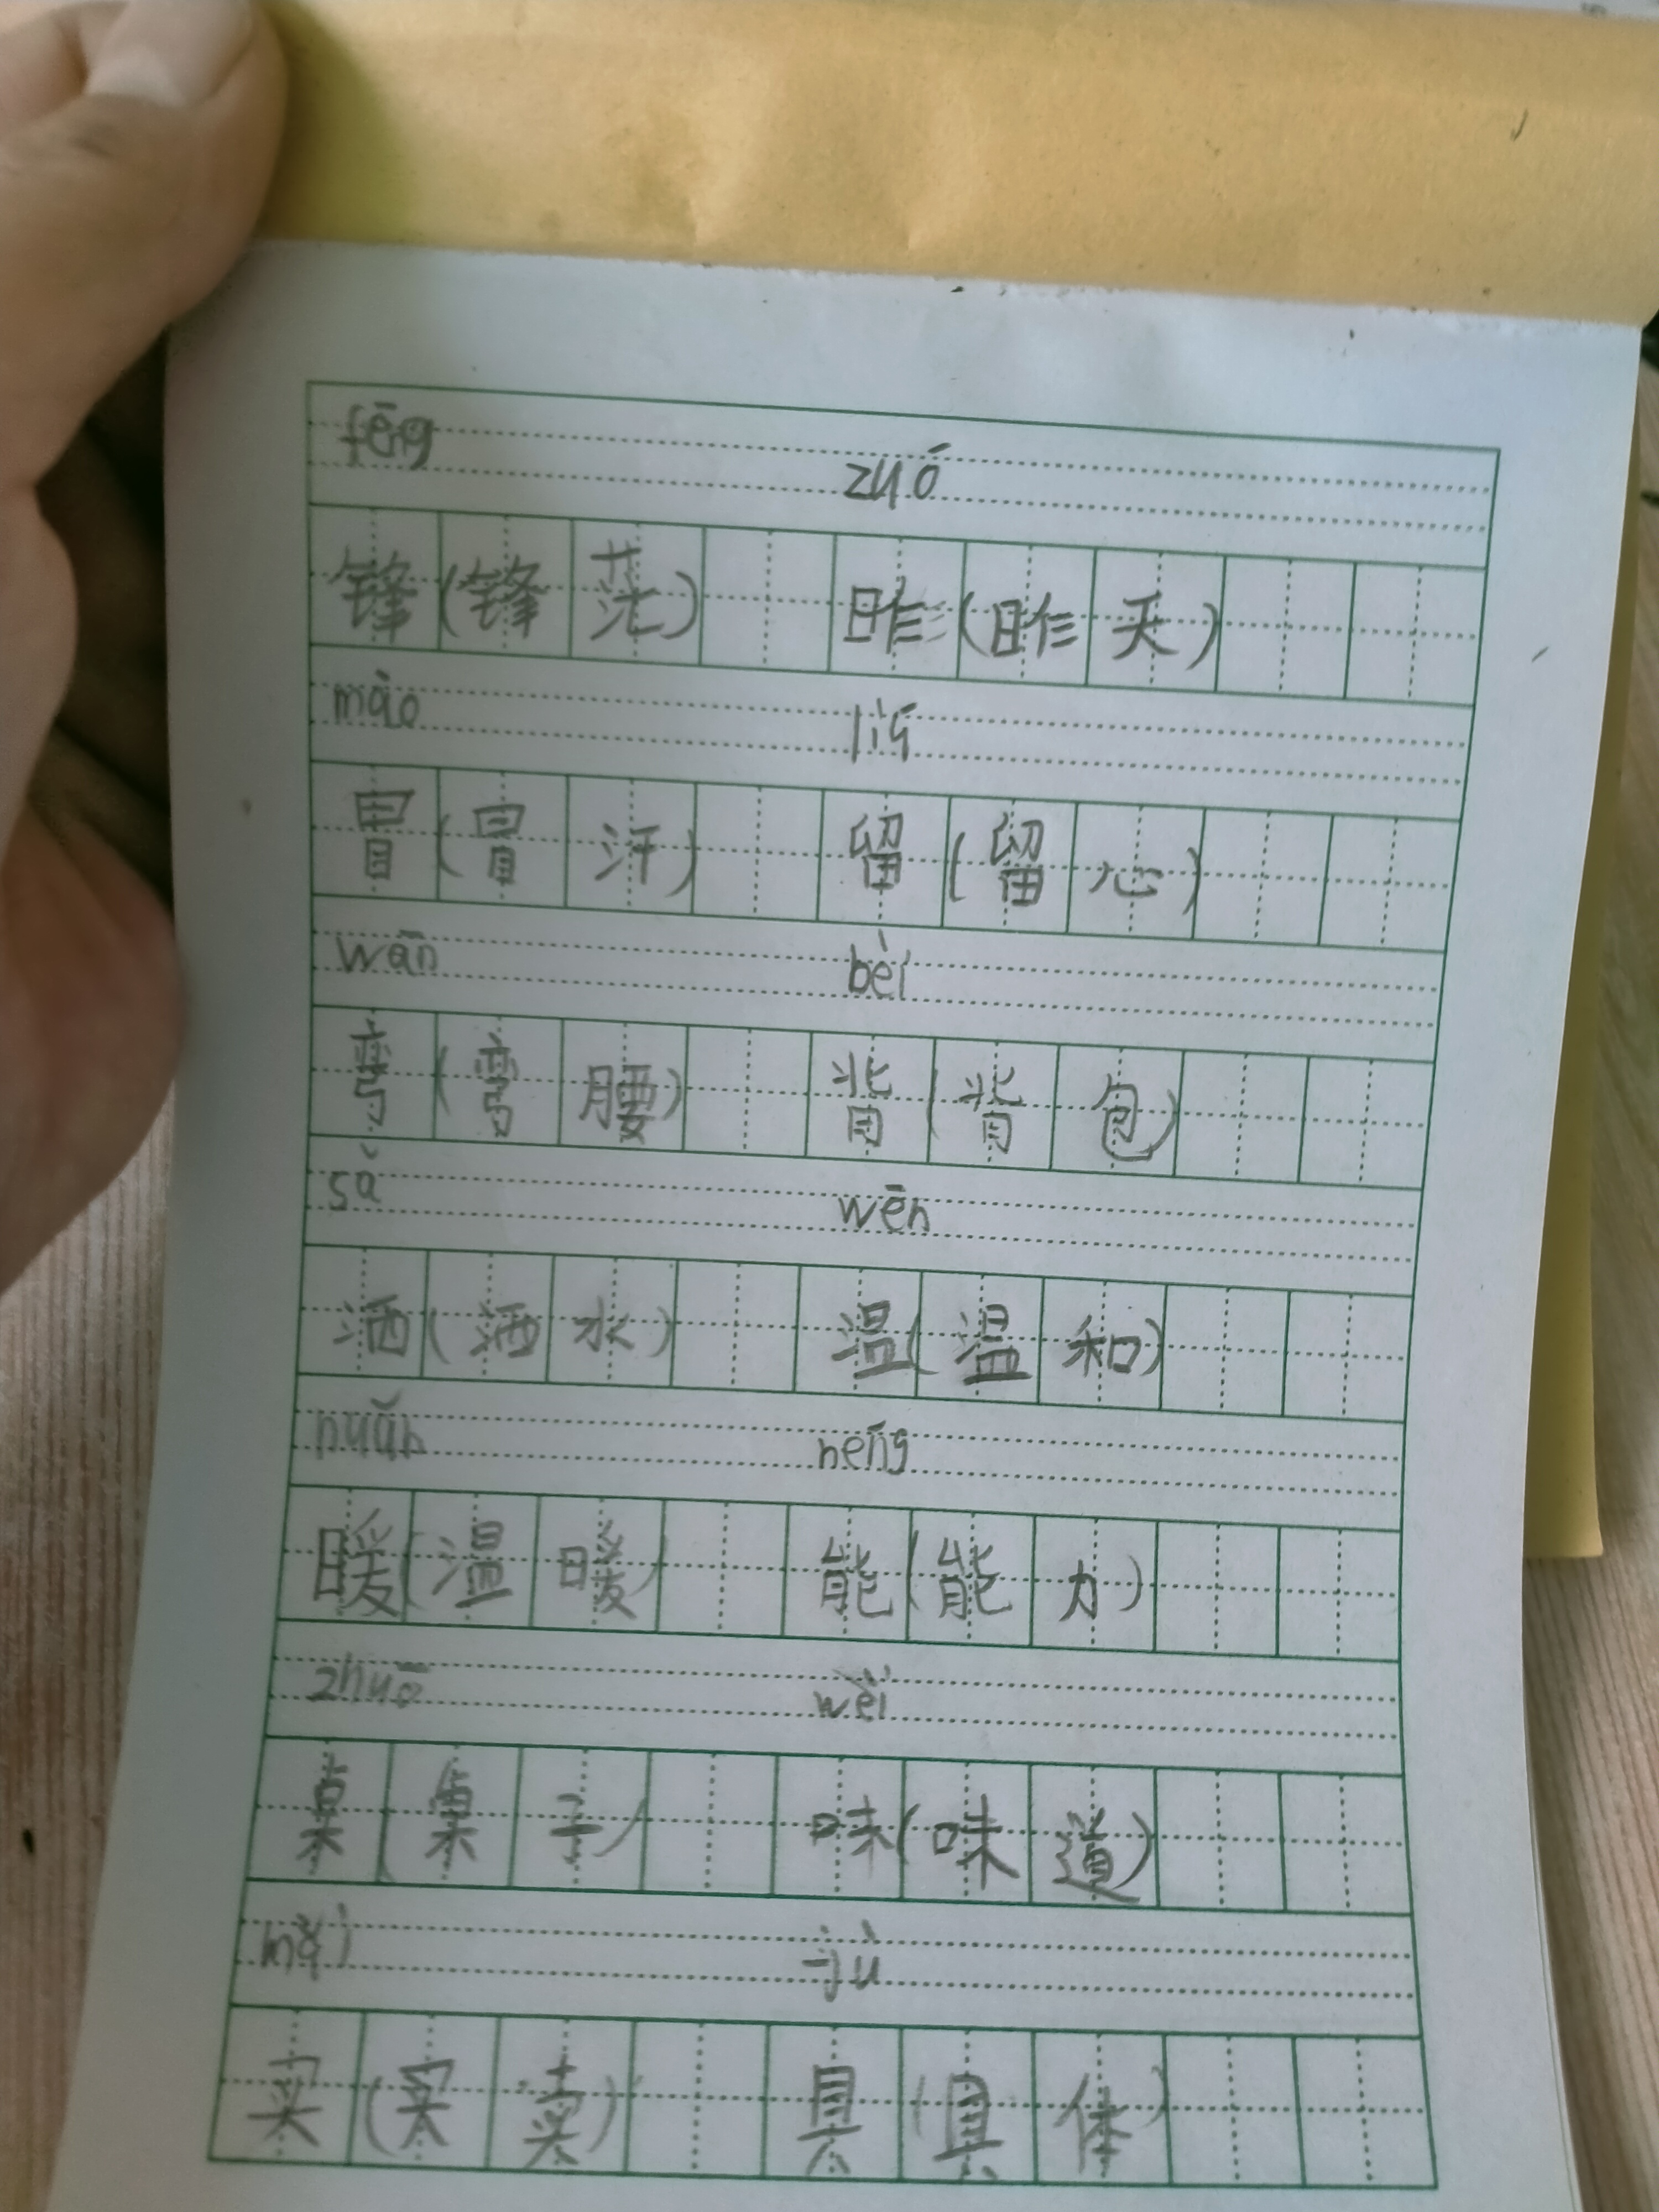 fēng zuó
锋(锋芒) 昨(昨天)
mào liú
冒(冒汗) 留(留心)
wān bèi
弯(弯腰) 背(背包)
sǎ wēn
洒(洒水) 温(温和)
nuǎn nēng
暖(温暖) 能(能力)
zhuō wèi
桌(桌子) 味(味道)
mǎi jù
买(买卖) 具(具体)